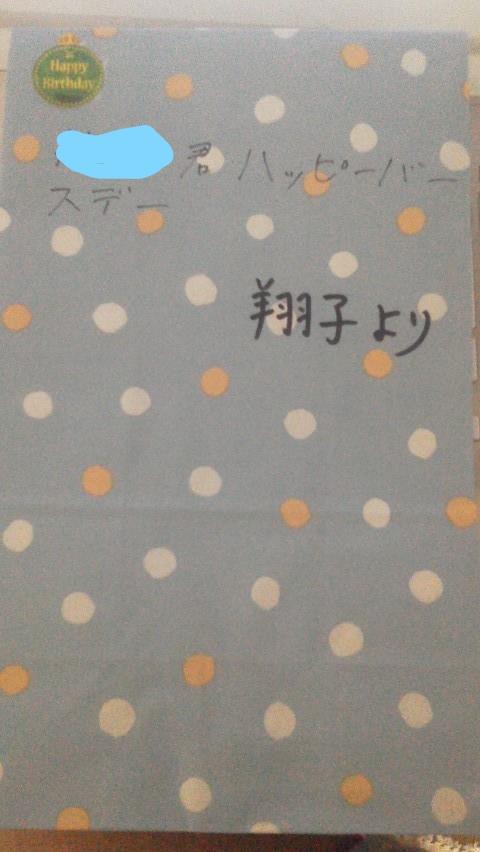 Happy
Birthday
君 ハッピーバー
スデー
翔子より